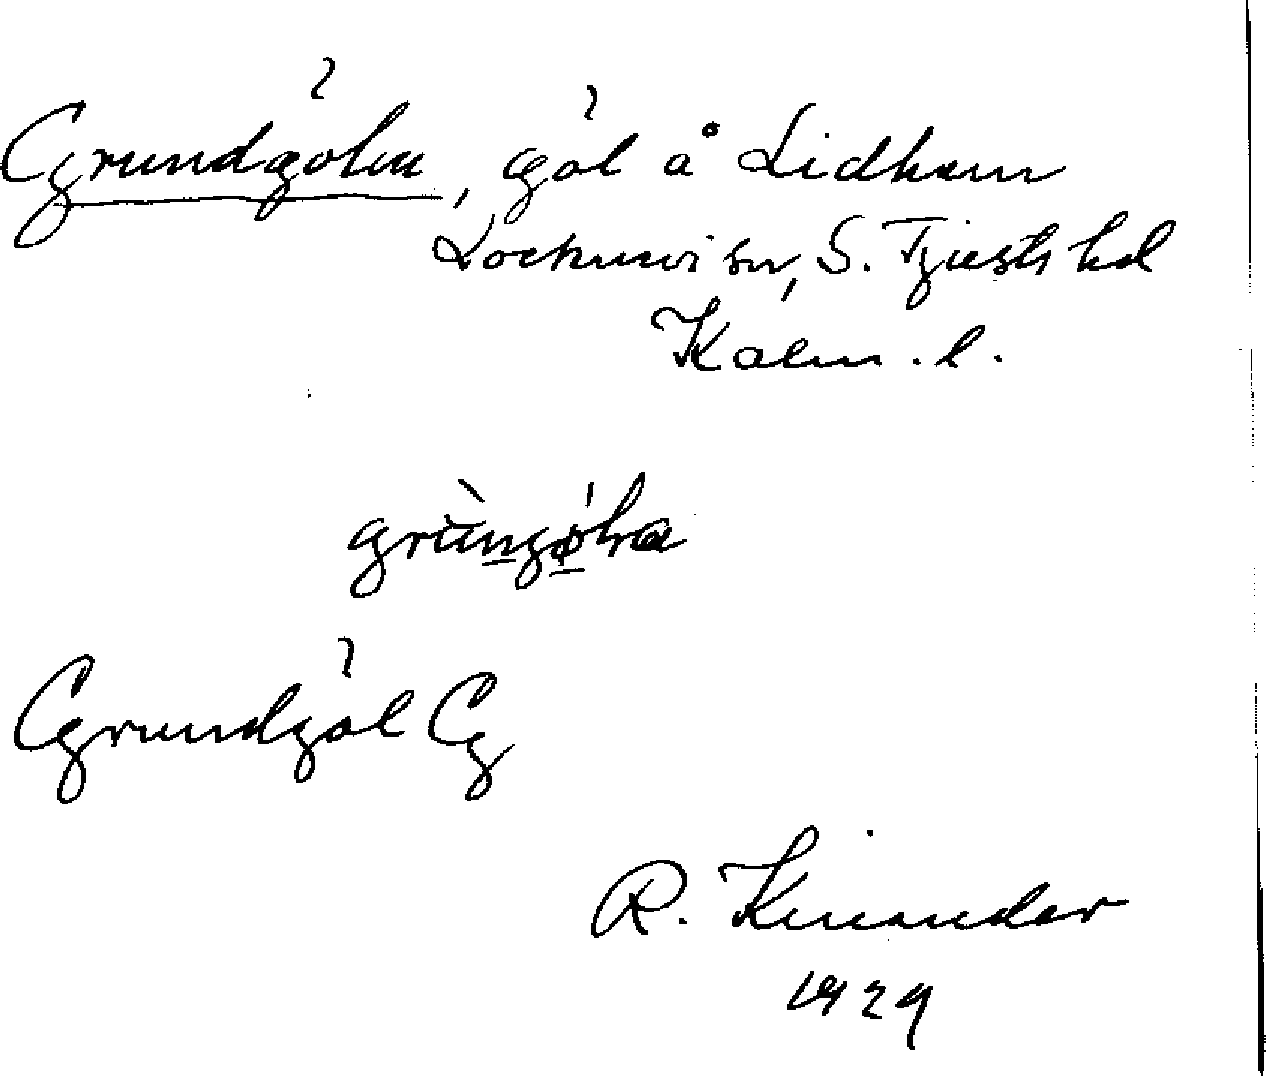 Grundgölen, göl å Lidhem
Locknevi sn, S. Tjusts hd
Kalm. l.
grùngǿla
Grundgöl Gg
R. Kinander
1929